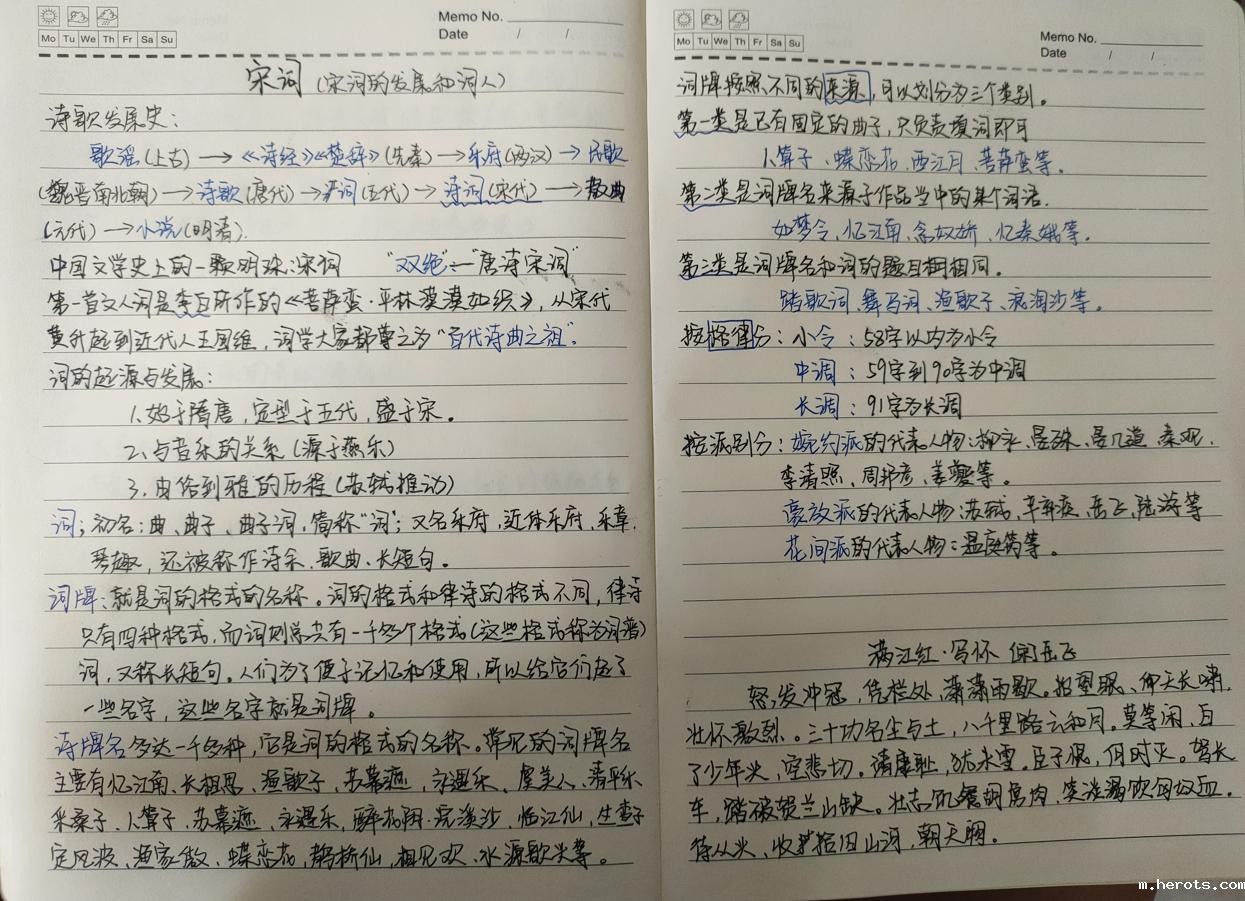 Memo No.
Mo Tu We Th Fr Sa Su
Date / /
宋词(宋词的发展和词人)
诗歌发展史:
歌谣(上古)→《诗经》《楚辞》(先秦)→乐府(两汉)→民歌
(魏晋南北朝)→诗歌(唐代)→词(五代)→诗词(宋代)→散曲
(元代)→小说(明清).
中国文学史上的一颗明珠:宋词 “双绝”:“唐诗宋词”
第一首文人词是李白所作的《菩萨蛮·平林漠漠如织》,从宋代
黄升起到近代人王国维,词学大家都尊之为“百代诗曲之祖”.
词的起源与发展:
1.始于隋唐,定型于五代,盛于宋。
2.与音乐的关系(源于燕乐)
3.由俗到雅的历程(苏轼推动)
词;初名:曲、曲子、曲子词,简称“词”;又名乐府,近体乐府,乐章,
琴趣,还被称作诗余、歌曲、长短句。
词牌:就是词的格式的名称。词的格式和律诗的格式不同,律诗
只有四种格式,而词则总共有一千多个格式(这些格式称为词谱)
词,又称长短句。人们为了便于记忆和使用,所以给它们起了
一些名字,这些名字就是词牌。
诗牌名多达一千多种,它是词的格式的名称。常见的词牌名
主要有忆江南、长相思、渔歌子、苏幕遮、永遇乐、虞美人、清平乐
采桑子、卜算子、苏幕遮、永遇乐,醉花阴·浣溪沙、临江仙,生查子
定风波、渔家傲、蝶恋花,鹊桥仙,相见欢、水源歌头等。
Memo No.
Mo Tu We Th Fr Sa Su
Date / /
词牌按照不同的来源,可以划分为三个类别。
第一类是已有固定的曲子,只负责填词即可
卜算子、蝶恋花、西江月、菩萨蛮等。
第二类是词牌名来源于作品当中的某个词语.
如梦令、忆江南、念奴娇、忆秦娥等.
第三类是词牌名和词的题目相相同。
踏歌词、舞马词、渔歌子、浪淘沙等。
按格律分:小令:58字以内为小令
中调:59字到90字为中调
长调:91字为长调
按派别分:婉约派的代表人物:柳永、晏殊、晏几道、秦观.
李清照、周邦彦、姜夔等。
豪放派的代表人物:苏轼、辛弃疾、岳飞、陆游等
花间派的代表人物:温庭筠等。
满江红·写怀 岳飞
怒发冲冠,凭栏处,潇潇雨歇。抬望眼、仰天长啸,
壮怀激烈。三十功名尘与土,八千里路云和月。莫等闲、白
了少年头,空悲切。靖康耻,犹未雪。臣子恨,何时灭。驾长
车,踏破贺兰山缺。壮志饥餐胡虏肉,笑谈渴饮匈奴血。
待从头、收拾旧山河,朝天阙。
m.herots.com